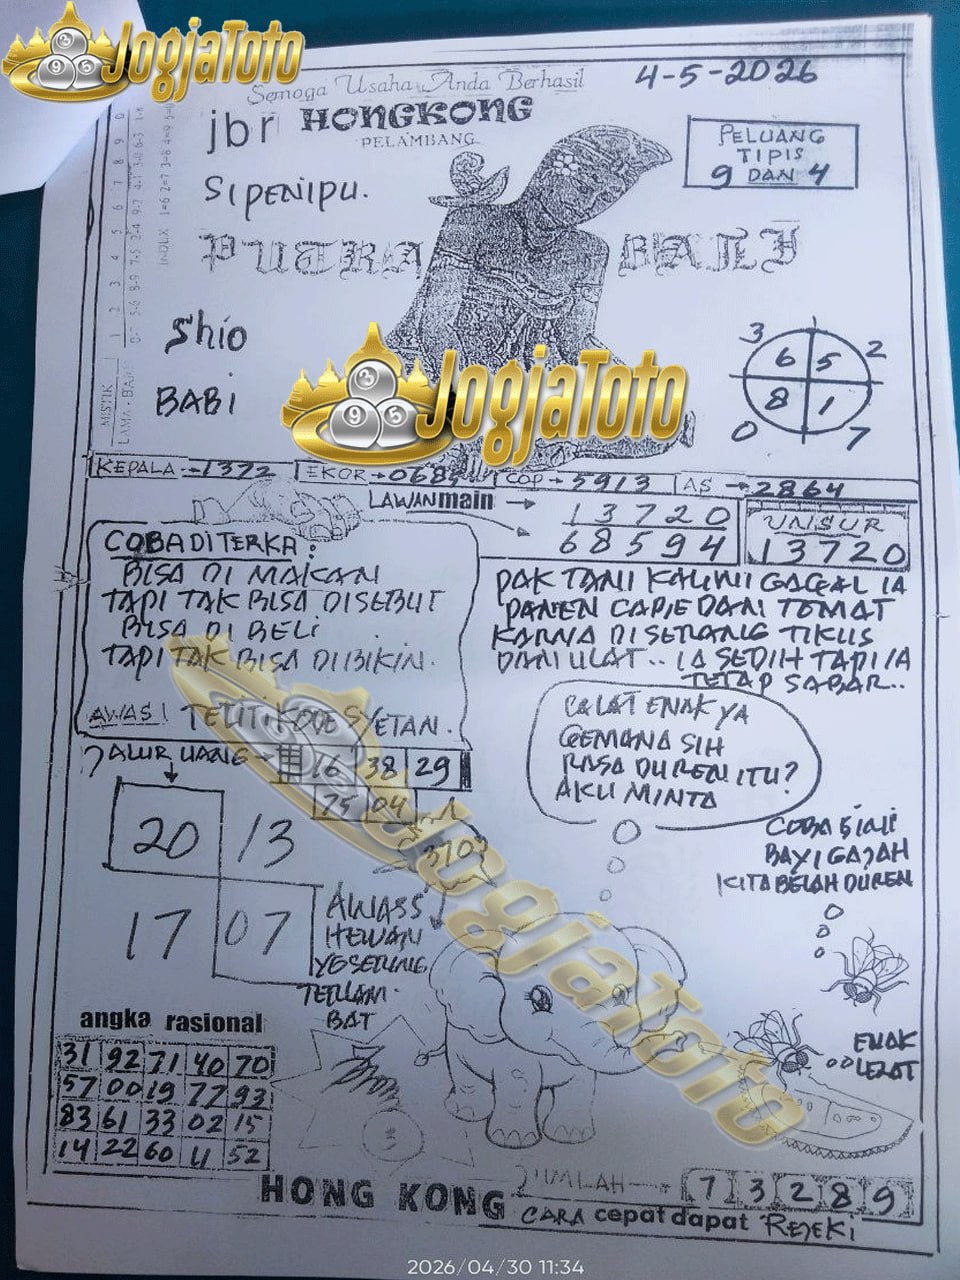 JogjaToto
Semoga Usaha Anda Berhasil
4-5-2026
jbr HONGKONG
PELAMBANG
PELUANG
TIPIS
9 DAN 4
SIPENIPU.
PUTRA BALI
Shio
BABI
JogjaToto
3 1 2
6 5
8 1
0 7
MISTIK
KEPALA → 1372
EKOR → 0685
COP → 5913
AS → 2864
LAWAN main →
13720
68594
UNSUR
13720
COBA DITERKA:
BISA DI MAKAN
TAPI TAK BISA DISEBUT
BISA DI BELI
TAPI TAK BISA DIBIKIN.
AWAS! TELITI KODE SYETAN.
PAK TANI KALINI GAGAL IA
PANEN CABE DAN TOMAT
KARNA DISERANG TIKUS
DAN ULAT.. IA SEDIH TAPI IA
TETAP SABAR..
JALUR UANG
16 38 29
75 04
20 13
17 07
3703
LALAT ENAK YA
GEMANA SIH
RASA DUREN ITU?
AKU MINTA
COBA SINI
BAYI GAJAH
KITA BELAH DUREN
AWASS
HEWAN
YG SERING
TERLAM
BAT
ENAK
LEZAT
JogjaToto
angka rasional
31 92 71 40 70
57 00 19 77 93
83 61 33 02 15
14 22 60 11 52
3
HONG KONG
JUMLAH → 7 3 2 8 9
CARA cepat dapat REJEKI
2026/04/30 11:34